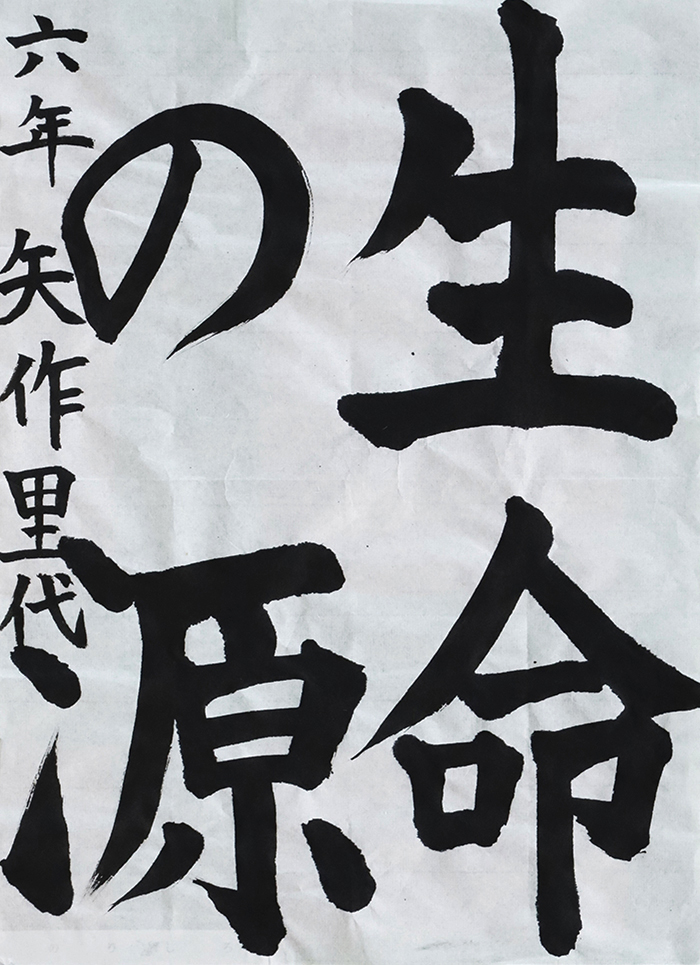 生命
の源
六年 矢作里代